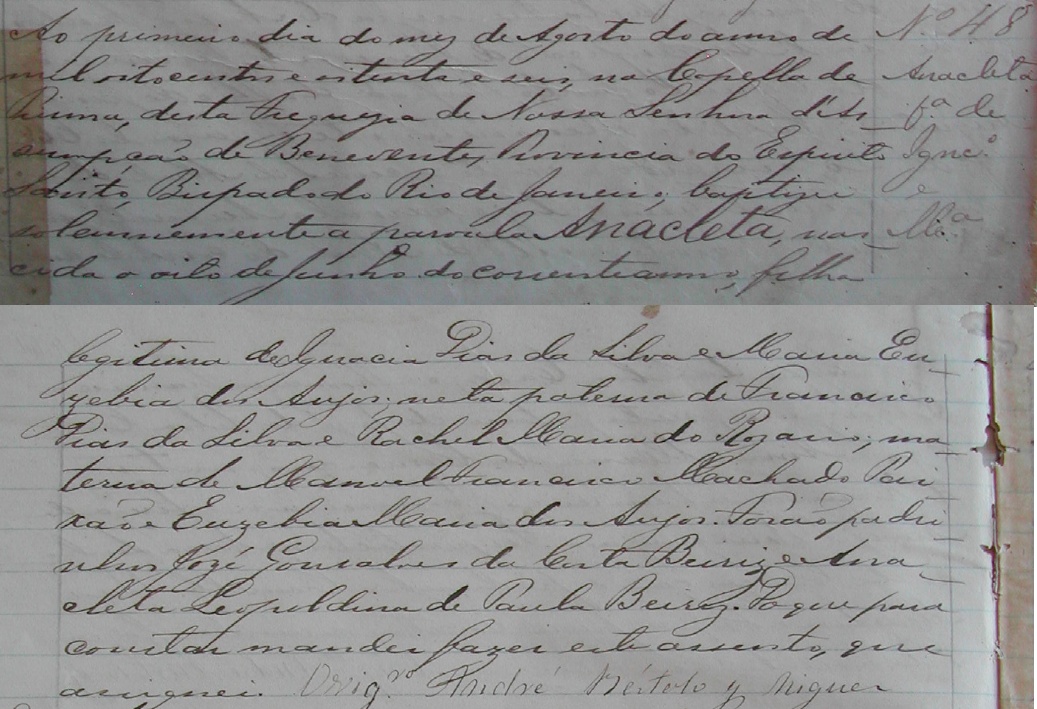 Ao primeiro dia do mez de Agosto do anno de
mil oitocentos e oitenta e seis, na Capella de
Piuma, desta Freguezia de Nossa Senhora d'As_
sumpção de Benevente, Provincia do Espirito
Santo, Bispado do Rio de Janeiro, baptizei
solemnemente a parvula Anacleta, nas_
cida a oito de Junho do corrente anno, filha
Nº 48
Anacleta
fª de
Ignº
e
Mª
legitima de Ignacio Dias da Silva e Maria Eu_
zebia dos Anjos; neta paterna de Francisco
Dias da Silva e Rachel Maria do Rozario; ma
terna de Manoel Francisco Machado Pai
xão e Euzebia Maria dos Anjos. Forão padri_
nhos José Gonsalves da Costa Beiriz e Ana_
cleta Leopoldina de Paula Beiriz. Do que para
constar mandei fazer este assento, que
assignei. Vigrº André